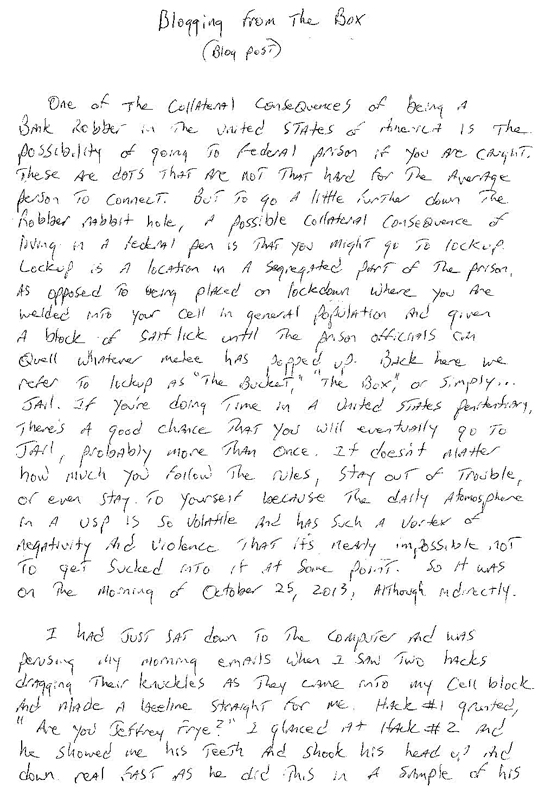 Blogging from The Box
(Blog post)
One of The Collateral Consequences of being A
Bank Robber in The United STATes of America Is The
possibility of going To federal prison if you Are caught.
These are dots That Are not That hard for The Average
person To connect. But To go A little further down The
Robber rabbit hole, A possible Collateral Consequence of
living in A federal pen is That you might go To lockup.
Lockup is A location in A segregated part of The prison,
As opposed To being placed on lockdown where you Are
welded into your cell in general population And given
A block of salt lick until The prison officials can
Quell whatever melee has popped up. Back here we
refer To lockup as "The Bucket," "The Box," or simply...
JAil. If you're doing Time in A United STATes penitentiary,
There's A good chance That you will eventually go To
JAil, probably more Than once. It doesn't matter
how much you follow The rules, stay out of Trouble,
or even stay To yourself because The daily Atmosphere
in A USP is so volatile And has such A vortex of
negativity And violence That it's nearly impossible not
To get sucked into it At Some point. So it was
on The morning of October 25, 2013, Although indirectly.
I had just sat down To The computer And was
perusing my morning emails when I saw Two hacks
dragging Their knuckles as They came into my cell block
And made A beeline straight for me. Hack #1 grunted,
"Are you Jeffrey Frye?" I glanced At Hack #2 And
he showed me his Teeth And shook his head up And
down real fast as he did This in A sample of his